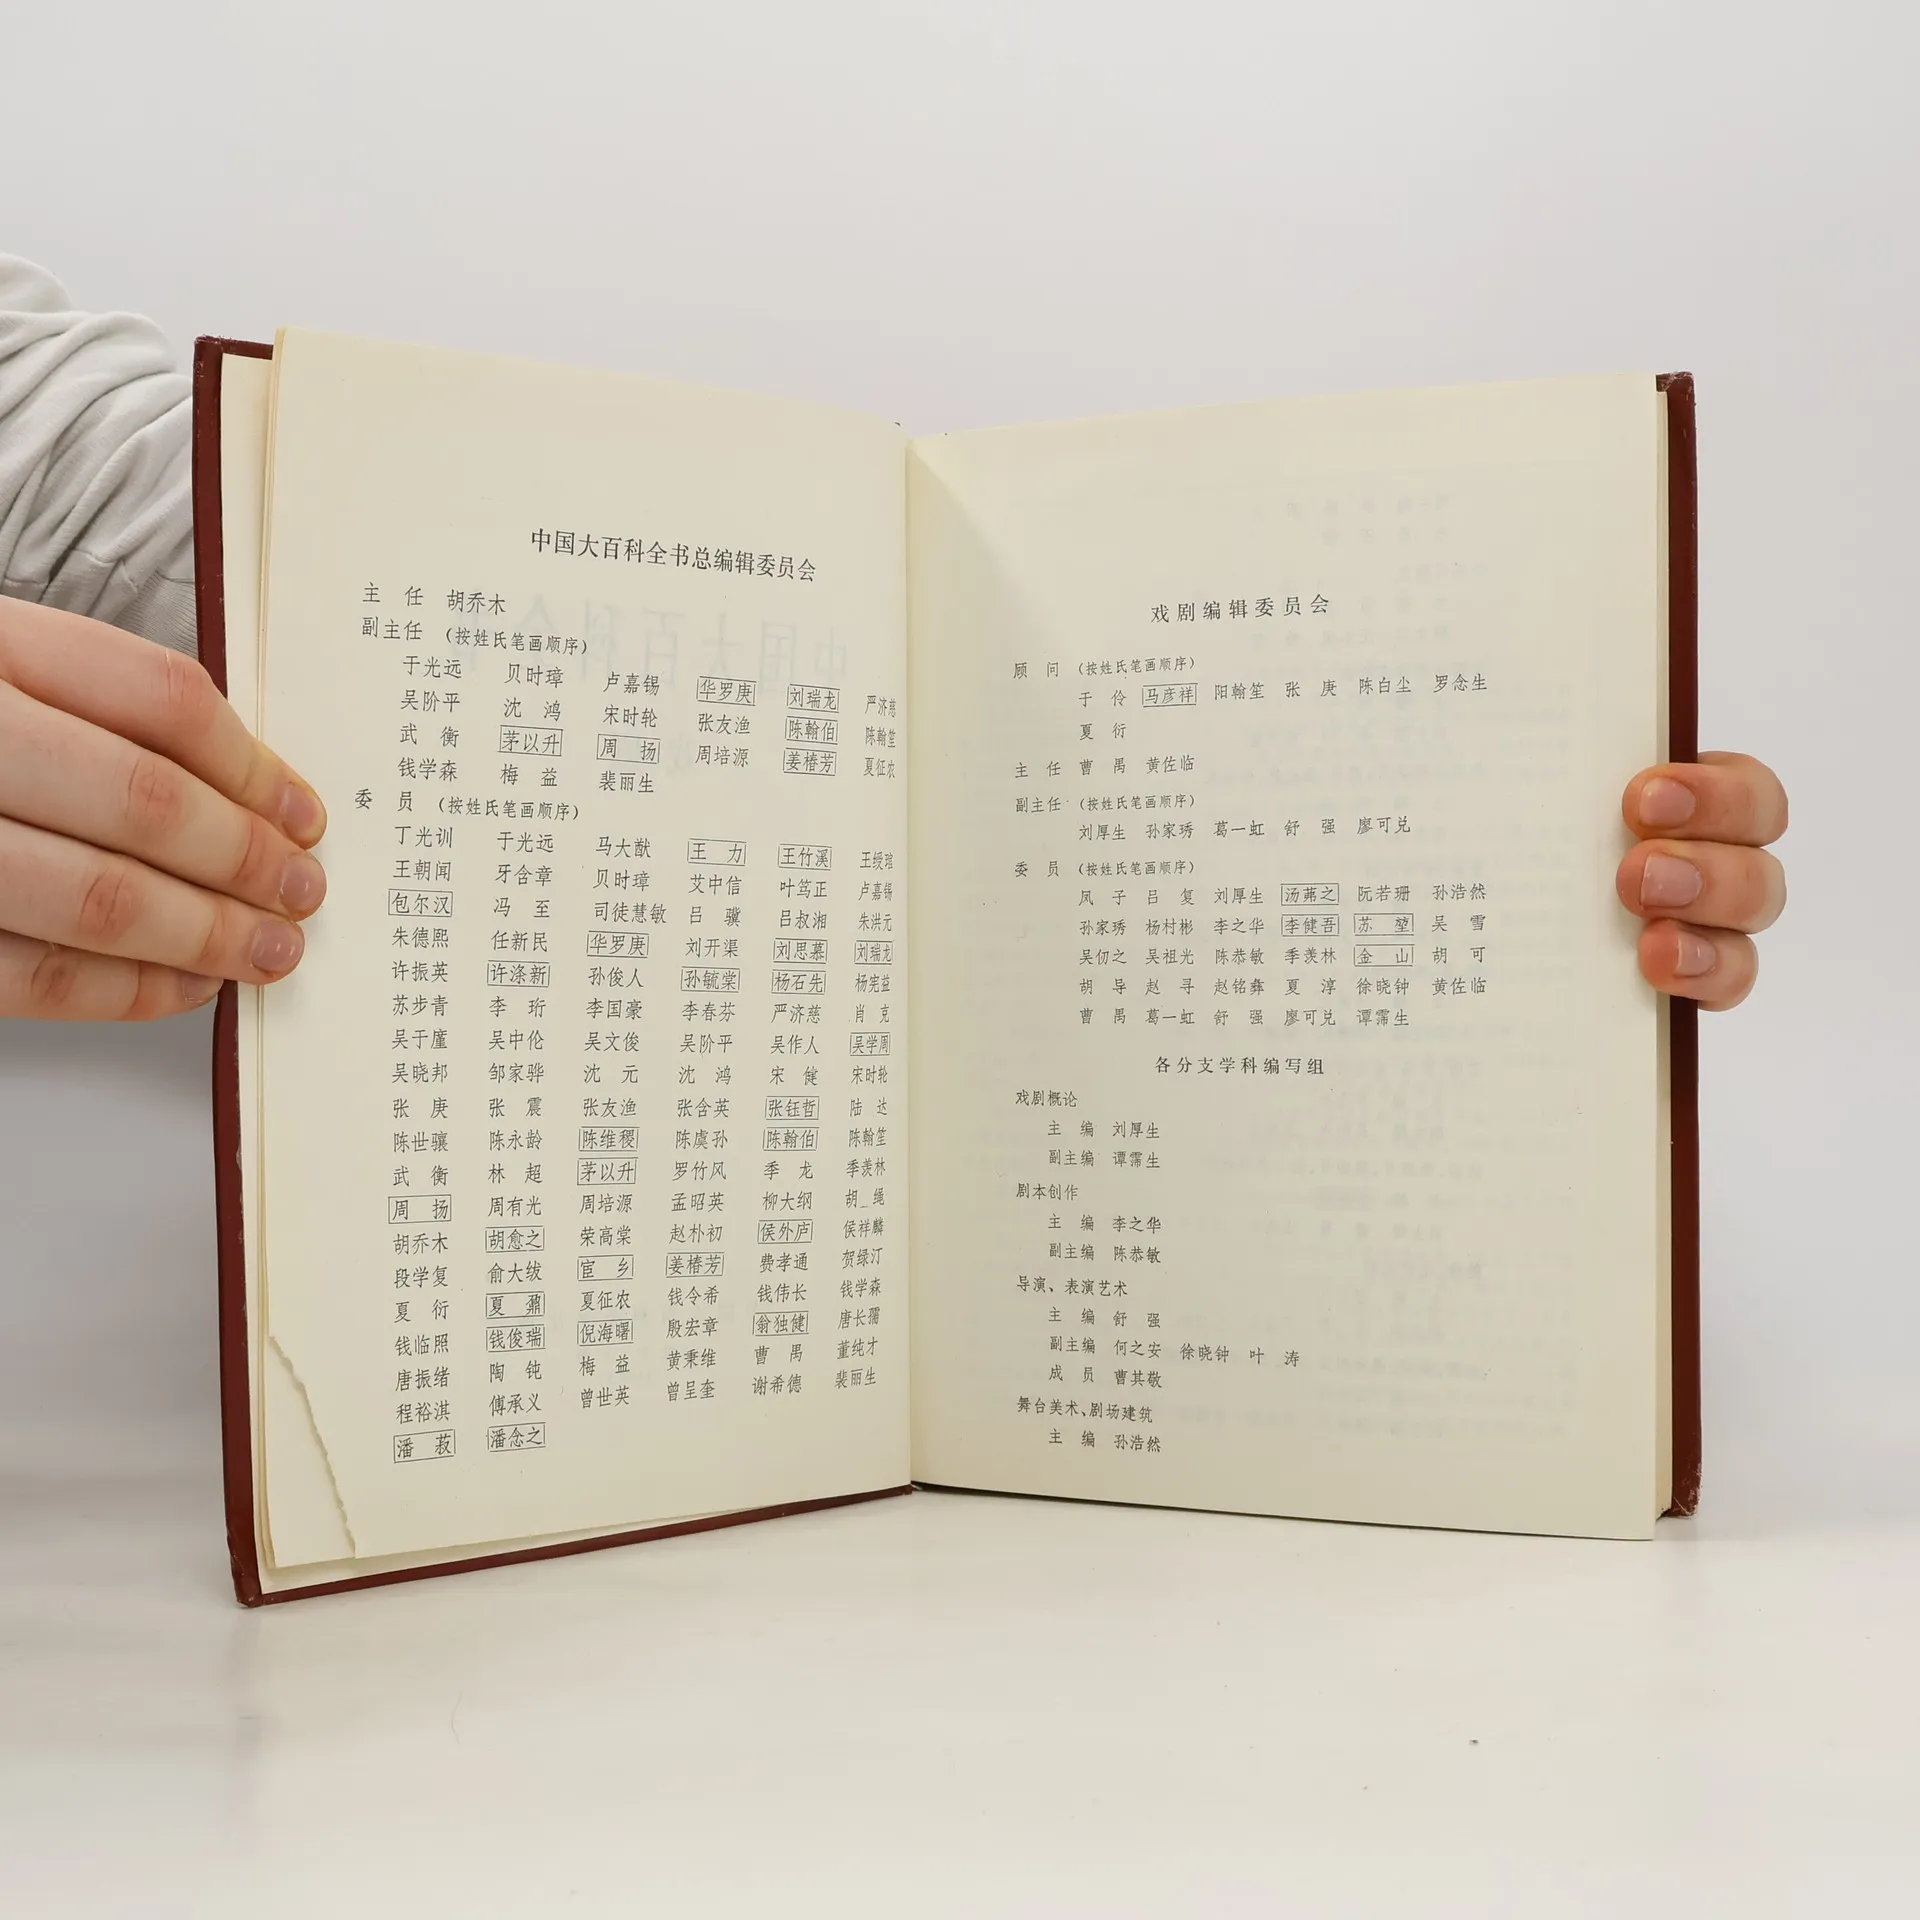 中国大百科全书总编辑委员会
主 任 胡乔木
副主任 (按姓氏笔画顺序)
于光远 贝时璋 卢嘉锡 华罗庚 刘瑞龙 严济慈
吴阶平 沈 鸿 宋时轮 张友渔 陈翰伯 陈翰笙
武 衡 茅以升 周 扬 周培源 姜椿芳 夏征农
钱学森 梅 益 裴丽生
委 员 (按姓氏笔画顺序)
丁光训 于光远 马大猷 王 力 王竹溪 王绶琯
王朝闻 牙含章 贝时璋 艾中信 叶笃正 卢嘉锡
包尔汉 冯 至 司徒慧敏 吕 骥 吕叔湘 朱洪元
朱德熙 任新民 华罗庚 刘开渠 刘思慕 刘瑞龙
许振英 许涤新 孙俊人 孙毓棠 杨石先 杨宪益
苏步青 李 珩 李国豪 李春芬 严济慈 肖 克
吴于廑 吴中伦 吴文俊 吴阶平 吴作人 吴学周
吴晓邦 邹家骅 沈 元 沈 鸿 宋 健 宋时轮
张 庚 张 震 张友渔 张含英 张钰哲 陆 达
陈世骧 陈永龄 陈维稷 陈虞孙 陈翰伯 陈翰笙
武 衡 林 超 茅以升 罗竹风 季 龙 季羡林
周 扬 周有光 周培源 孟昭英 柳大纲 胡 绳
胡乔木 胡愈之 荣高棠 赵朴初 侯外庐 侯祥麟
段学复 俞大绂 宦 乡 姜椿芳 费孝通 贺绿汀
夏 衍 夏 鼐 夏征农 钱令希 钱伟长 钱学森
钱临照 钱俊瑞 倪海曙 殷宏章 翁独健 唐长孺
唐振绪 陶 钝 梅 益 黄秉维 曹 禺 董纯才
程裕淇 傅承义 曾世英 曾呈奎 谢希德 裴丽生
潘 菽 潘念之
戏剧编辑委员会
顾 问 (按姓氏笔画顺序)
于 伶 马彦祥 阳翰笙 张 庚 陈白尘 罗念生
夏 衍
主 任 曹 禺 黄佐临
副主任 (按姓氏笔画顺序)
刘厚生 孙家琇 葛一虹 舒 强 廖可兑
委 员 (按姓氏笔画顺序)
凤 子 吕 复 刘厚生 汤茀之 阮若珊 孙浩然
孙家琇 杨村彬 李之华 李健吾 苏 堃 吴 雪
吴仞之 吴祖光 陈恭敏 季羡林 金 山 胡 可
胡 导 赵 寻 赵铭彝 夏 淳 徐晓钟 黄佐临
曹 禺 葛一虹 舒 强 廖可兑 谭霈生
各分支学科编写组
戏剧概论
主 编 刘厚生
副主编 谭霈生
剧本创作
主 编 李之华
副主编 陈恭敏
导演、表演艺术
主 编 舒 强
副主编 何之安 徐晓钟 叶 涛
成 员 曹其敬
舞台美术、剧场建筑
主 编 孙浩然